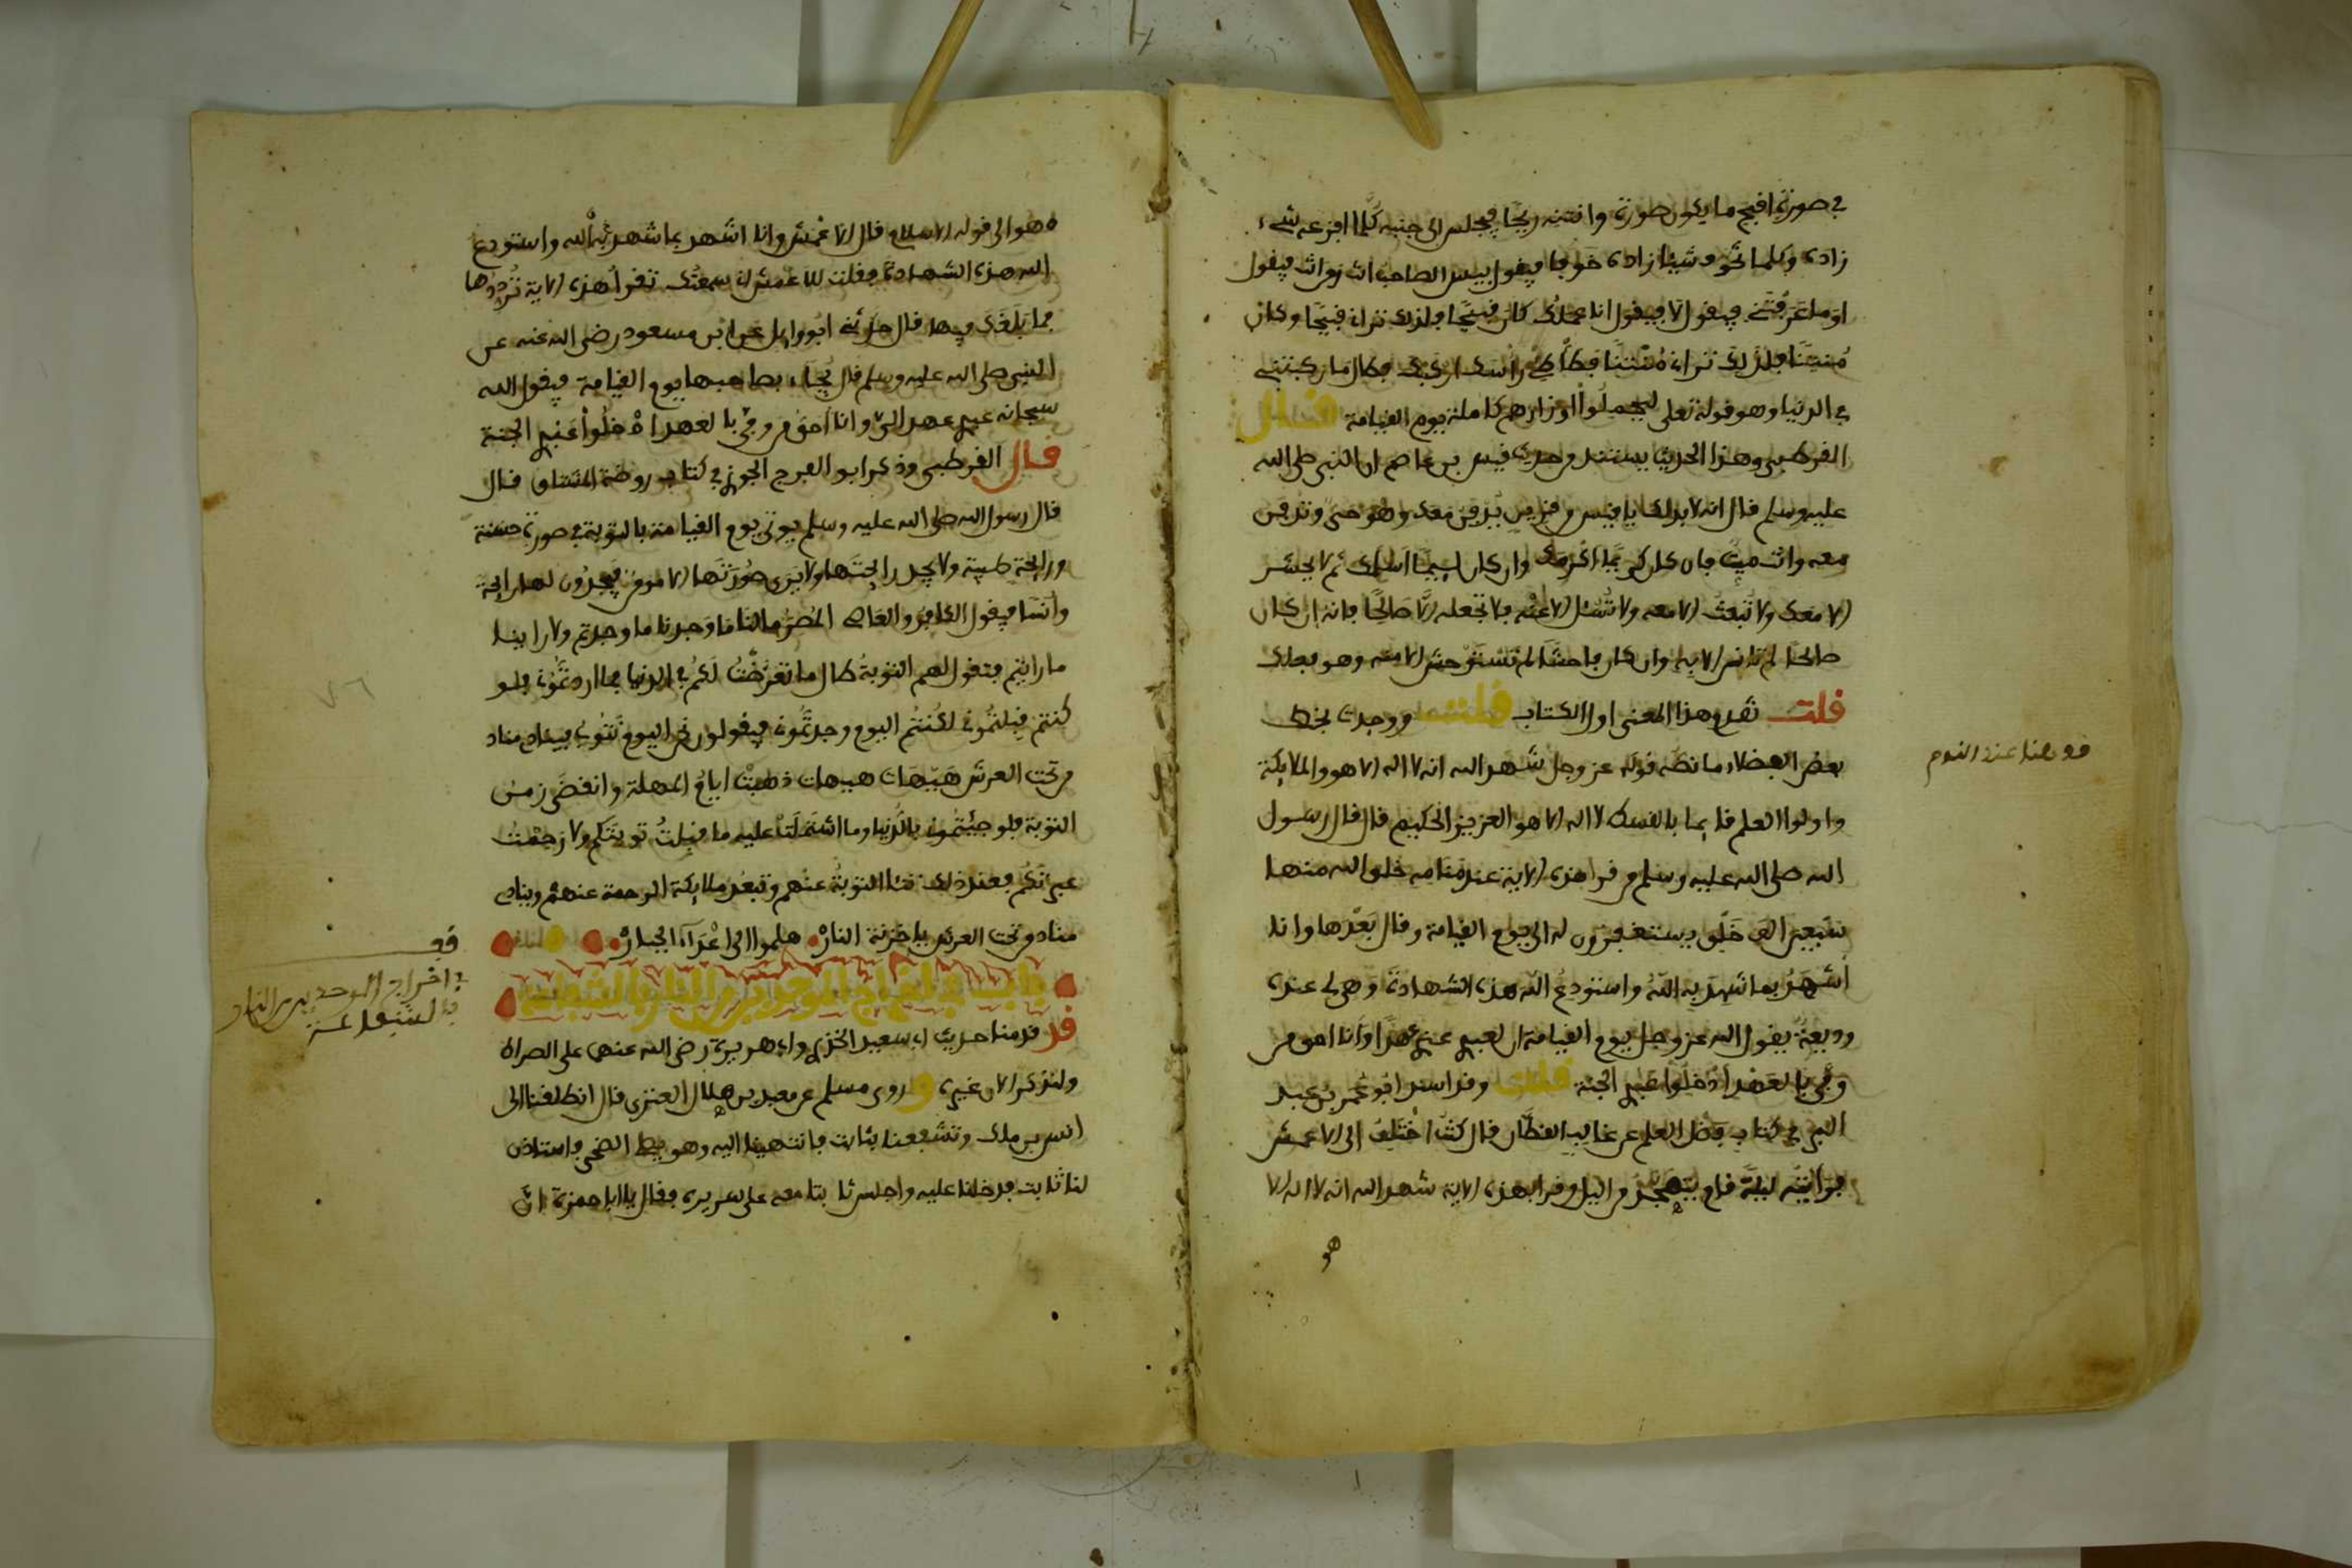 في صورة اقبح ما يكون صورة وانتنه ريحا فيجلس الى جنبه كلما افزعه شيء
زاده وكلما تخوف شيئا زاده خوفا فيقول بيس الصاحب انت ومن انت فيقول
اوما تعرفني فيقول لا فيقول انا عملك كان قبيحا فلذلك تراه قبيحا وكان
منتنا فلذلك تراه منتنا فطأطئ راسك اركبك فطال ما ركبتني
في الدنيا وهو قوله تعلى ليحملوا اوزارهم كاملة يوم القيامة قال
القرطبي وهذا الحديث يستند من حديث قيس بن عاصم ان النبي صلى الله
عليه وسلم قال انه لا بد لك يا قيس من قرين يدفن معك وهو حي وتدفن
معه وانت ميت فان كان كريما اكرمك وان كان ليما اسلمك ثم لا يحشر
الا معك ولا تبعث الا معه ولا تسئل الا عنه فلا تجعله الا صالحا فانه ان كان
صالحا لم تانس الا به وان كان فاحشا لم تستوحش الا منه وهو فعلك
قلت تقدم هذا المعنى اول الكتاب قلت ووجدت بخط
بعض الفضلاء ما نصه قوله عز وجل شهد الله انه لا اله الا هو والملايكة
واولوا العلم قايما بالقسط لا اله الا هو العزيز الحكيم قال قال رسول
الله صلى الله عليه وسلم من قرا هذه الاية عند منامه خلق الله منها
سبعين الف خلق يستغفرون له الى يوم القيامة وقال بعدها وانا
اشهد بما شهد به الله واستودع الله هذه الشهادة وهي لي عنده
وديعة يقول الله عز وجل يوم القيامة ان لعبدي عندي عهدا وانا احق من
وفى بالعهد ادخلوا عبدي الجنة قلت وقد اسند ابو عمر بن عبد
البر في كتاب فضل العلم عن غالب القطان قال كنت اختلف الى الاعمش
فرايته ليلة قام يتهجد من اليل وقرا بهذه الاية شهد الله انه لا اله الا
هو
قف هنا عند النوم
ه هو الى قوله الاسلام قال الاعمش وانا اشهد بما شهد به الله واستودع
الله هذه الشهادة فقلت للاعمش اني سمعتك تقرأ هذه الاية ترددها
فما بلغك فيها قال حدثني ابو وايل عن ابن مسعود رضي الله عنه عن
النبي صلى الله عليه وسلم قال يجاء بصاحبها يوم القيامة فيقول الله
سبحانه عبدي عهد الي وانا احق من وفى بالعهد ادخلوا عبدي الجنة
قال القرطبي وذكر ابو الفرج الجوزي في كتاب روضة المشتاق قال
قال رسول الله صلى الله عليه وسلم يوتى يوم القيامة بالتوبة في صورة حسنة
ورايحة طيبة ولا يجد رايحتها ولا يرى صورتها الا مومن فيجدون لها رايحة
وانسا فيقول الكافر والعاصي المصر مالنا ما وجدنا ما وجدتم ولا راينا
ما رايتم فتقول لهم التوبة طال ما تعرضت لكم في الدنيا فما اردتموني فلو
كنتم قبلتموني لكنتم اليوم وجدتموني فيقولون نحن اليوم نتوب فينادي مناد
من تحت العرش هيهات هيهات ذهبت ايام المهلة وانقضى زمن
التوبة فلو جئتموني بالدنيا وما اشتملت عليه ما قبلت توبتكم ولا رحمت
عبرتكم فعند ذلك تنا التوبة عنهم وتبعد ملايكة الرحمة عنهم وينادي
مناد من تحت العرش يا خزنة النار هلموا الى اعداء الجبار
باب في اخراج الموحدين من النار بالشفاعة
قد قدمنا حديث ابي سعيد الخدري وابي هريرة رضي الله عنهما على الصراط
ولنذكر الان غيره وروى مسلم عن معبد بن هلال العنزي قال انطلقنا الى
انس بن ملك وتشفعنا بثابت فانتهينا اليه وهو يصلي الضحى فاستاذن
لنا ثابت فدخلنا عليه واجلس ثابتا معه على سريره فقال يا ابا حمزة ان
قف
في اخراج الموحدين من النار
بالشفاعة
٧٦